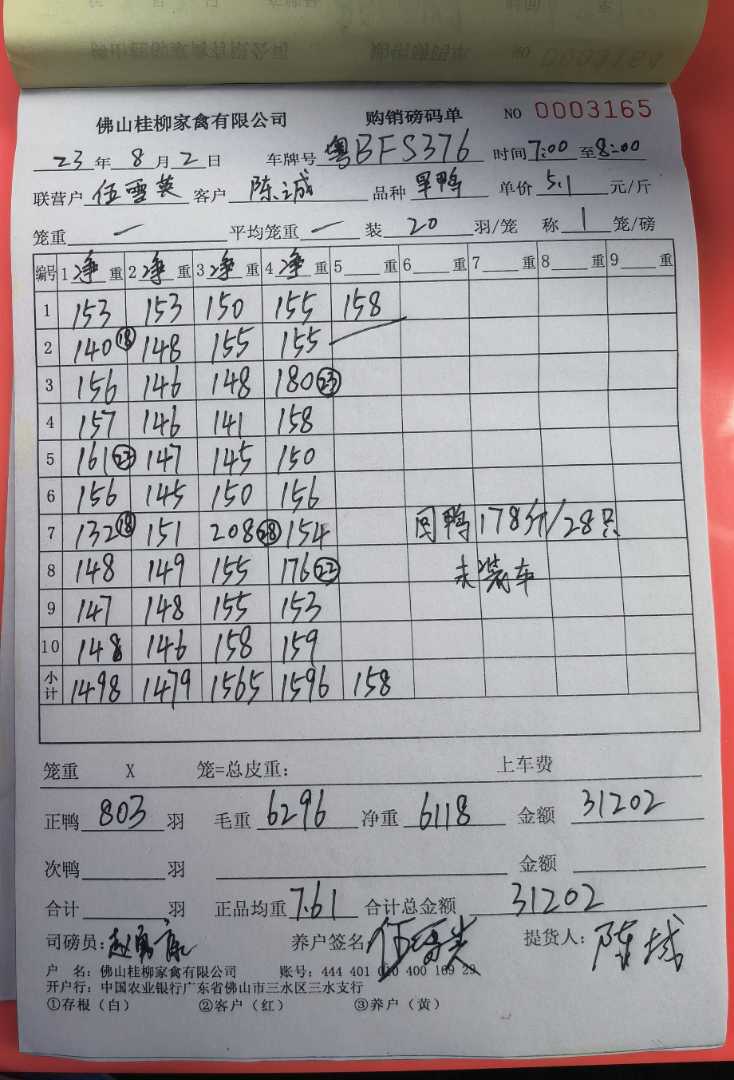 佛山桂柳家禽有限公司 购销磅码单 NO 0003165
23年8月2日 车牌号 粤BFS376 时间7:00至8:00
联营户 伍雪英 客户 陈诚 品种 旱鸭 单价 5.1 元/斤
笼重 — 平均笼重 — 装 20 羽/笼 称 1 笼/磅
编号 1净重 2净重 3净重 4净重 5 重 6 重 7 重 8 重 9 重
1 153 153 150 155 158
2 140⑱ 148 155 155
3 156 146 148 180㉓
4 157 146 141 158
5 161㉒ 147 145 150
6 156 145 150 156
7 132⑱ 151 208㉘ 154 回鸭178斤/28只
8 148 149 155 176㉒ 未装车
9 147 148 155 153
10 148 146 158 159
小计 1498 1479 1565 1596 158
笼重 X 笼=总皮重: 上车费
正鸭 803 羽 毛重 6296 净重 6118 金额 31202
次鸭 羽 金额
合计 羽 正品均重 7.61 合计总金额 31202
司磅员: 养户签名: 提货人: 陈
户 名: 佛山桂柳家禽有限公司 账号: 444 401 010 400 169 29
开户行: 中国农业银行广东省佛山市三水区三水支行
①存根（白） ②客户（红） ③养户（黄）